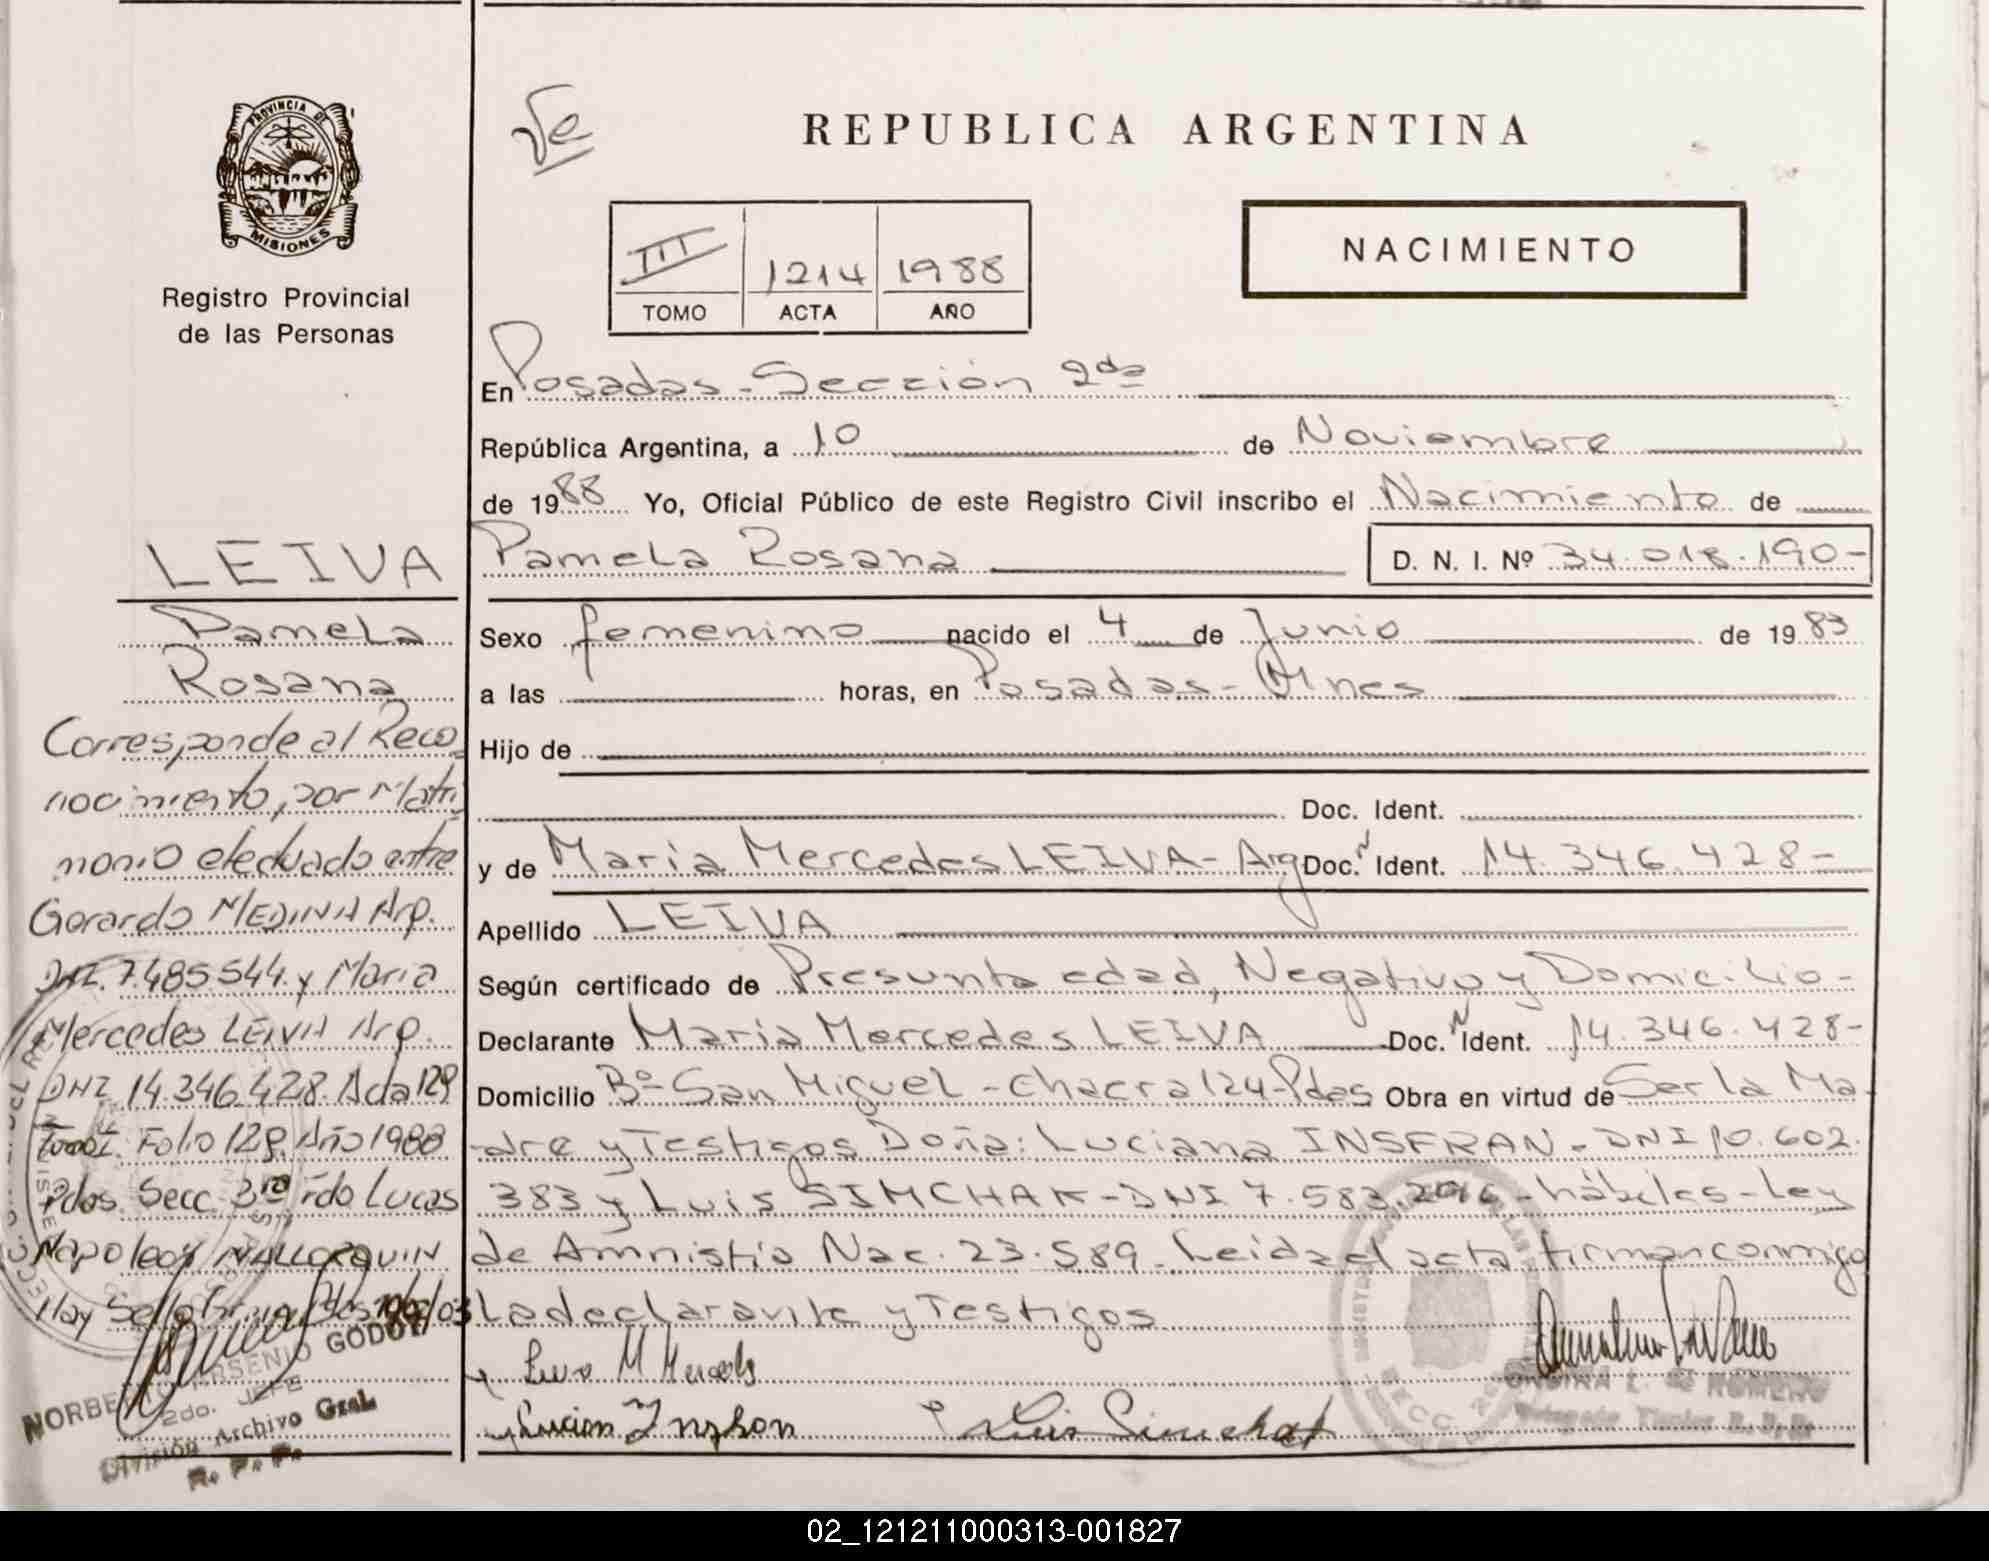 PROVINCIA DE
MISIONES
Registro Provincial
de las Personas
LEIVA
Pamela
Rosana
Corresponde al Reco
nocimiento, por Matri
monio efectuado entre
Gerardo MEDINA Arg.
DNI. 7.485.544. y Maria
Mercedes LEIVA Arg.
DNI 14.346.428. Acta 129
Tomo I. Folio 129. Año 1988
Pdas. Secc. 3ra fdo Lucas
Napoleon MALLORQUIN
Hay Sello
NORBERTO ARSENIO GODOY
2do. JEFE
División Archivo Gral.
R. P. P.
REPUBLICA ARGENTINA
III 1214 1988
TOMO ACTA AÑO
NACIMIENTO
En Posadas - Sección 2da
República Argentina, a 10 de Noviembre
de 1988 Yo, Oficial Público de este Registro Civil inscribo el Nacimiento de
Pamela Rosana D. N. I. Nº 34.018.190-
Sexo femenino nacido el 4 de Junio de 1983
a las horas, en Posadas - Mnes
Hijo de
Doc. Ident.
y de Maria Mercedes LEIVA - Arg Doc. Ident. 14.346.428-
Apellido LEIVA
Según certificado de Presunta edad, Negativo y Domicilio-
Declarante Maria Mercedes LEIVA Doc. Ident. 14.346.428-
Domicilio Bº San Miguel - chacra 124 - Pdas Obra en virtud de Ser la Ma-
dre y Testigos Doña: Luciana INSFRAN - DNI 10.602.
383 y Luis SIMCHAK - DNI 7.583.296 - hábiles - Ley
de Amnistia Nac. 23.589 - Leida el acta firman conmigo
La declarante y Testigos
Luis Simchak
02_121211000313-001827